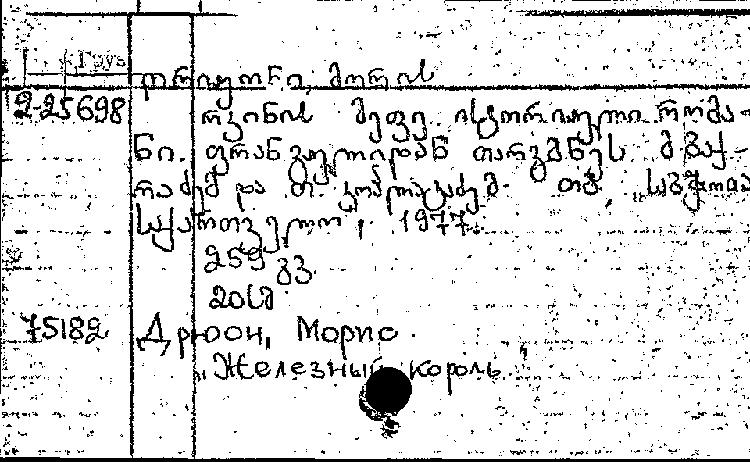 Груз
დრიუონი, მორის
2-25698 რკინის მეფე. ისტორიული რომა-
ნი. ფრანგულიდან თარგმნეს მ. ბაქ-
რაძემ და თ. . თბ, „საბჭოთა
საქართველო", 1977.
259 გვ.
20სმ
75182 Дрюон, Морис.
„Железный король"